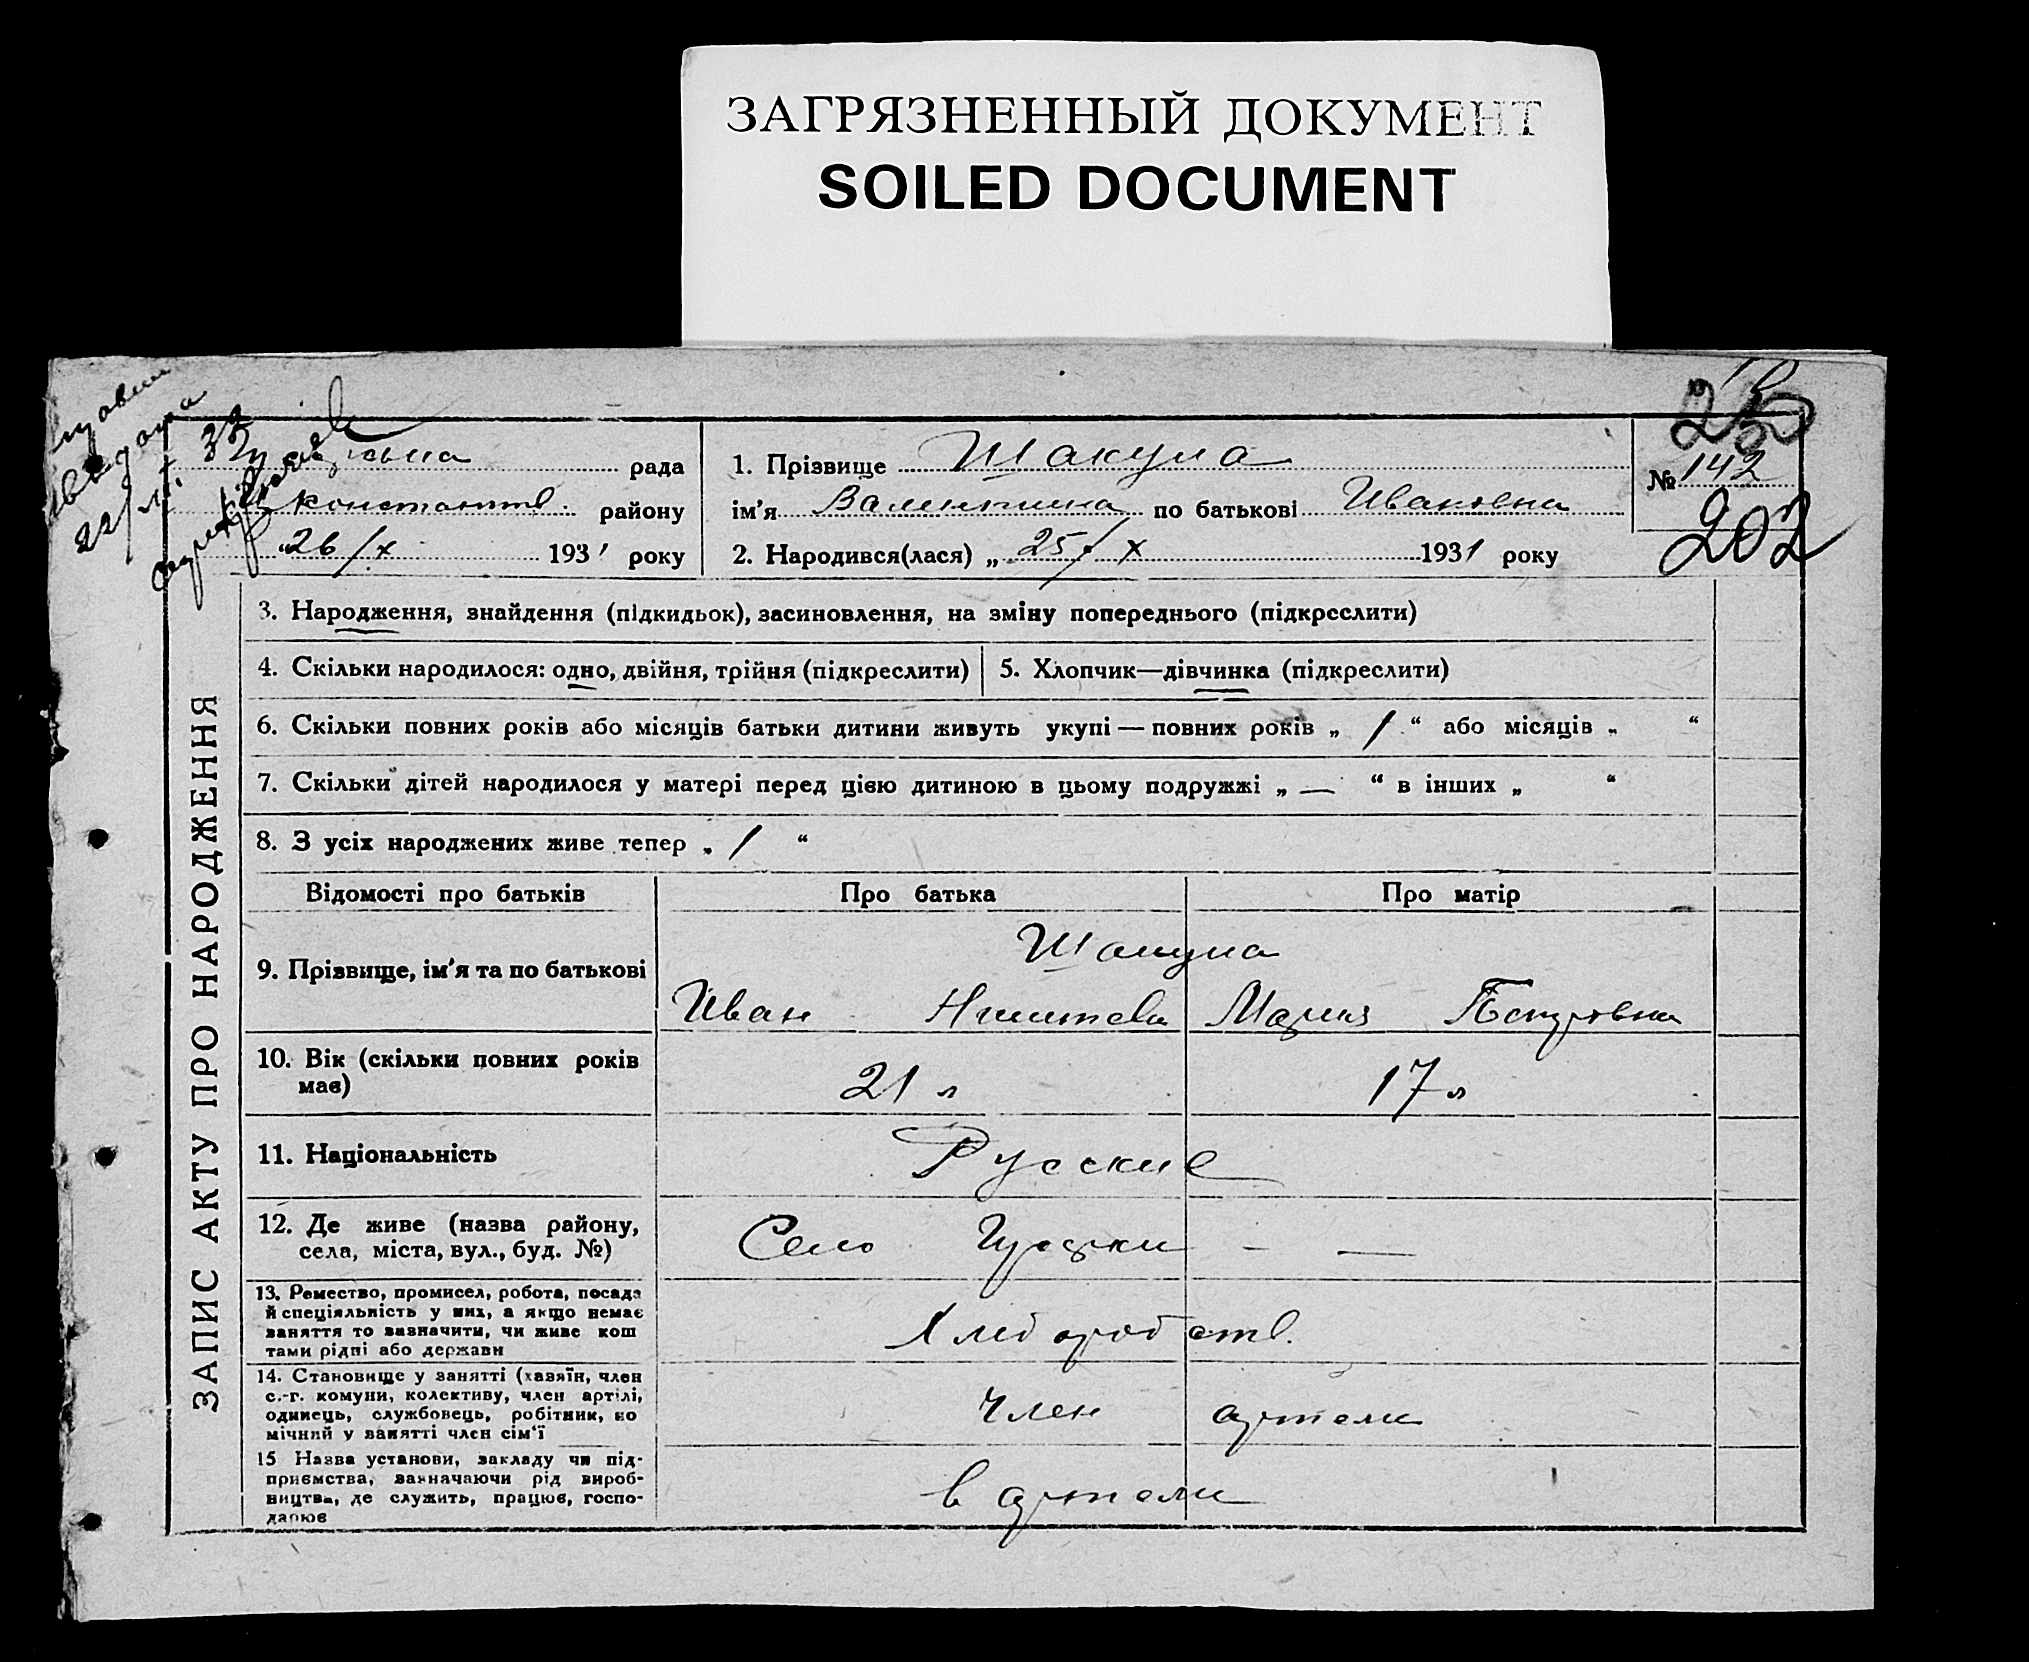 ЗАГРЯЗНЕННЫЙ ДОКУМЕНТ
SOILED DOCUMENT
рада
констант. району
26/X 1931 року
1. Прізвище Шакула
ім'я Валентина по батькові Ивановна
2. Народився(лася) „ 25/X 1931 року
№ 142
202
ЗАПИС АКТУ ПРО НАРОДЖЕННЯ
3. Народження, знайдення (підкидьок), засиновлення, на зміну попереднього (підкреслити)
4. Скільки народилося: одно, двійня, трійня (підкреслити)
5. Хлопчик—дівчинка (підкреслити)
6. Скільки повних років або місяців батьки дитини живуть укупі — повних років „ 1 “ або місяців „ “
7. Скільки дітей народилося у матері перед цією дитиною в цьому подружжі „ — “ в інших „ “
8. З усіх народжених живе тепер „ 1 “
Відомості про батьків Про батька Про матір
9. Прізвище, ім'я та по батькові
Шакула
Иван Мария Петровна
10. Вік (скільки повних років
має)
21 л 17 л
11. Національність
Русские
12. Де живе (назва району,
села, міста, вул., буд. №)
Село — —
13. Ремество, промисел, робота, посада
й спеціяльність у них, а якщо немає
заняття то визначити, чи живе кош
тами рідні або держави
Хлебороб ств.
14. Становище у занятті (хазяїн, член
с.-г. комуни, колективу, член артілі,
одинець, службовець, робітник, по
мічний у занятті член сім'ї
Член артели
15 Назва установи, закладу чи під-
приємства, зазначаючи рід вироб-
ництва, де служить, працює, госпо-
дарює
в артели